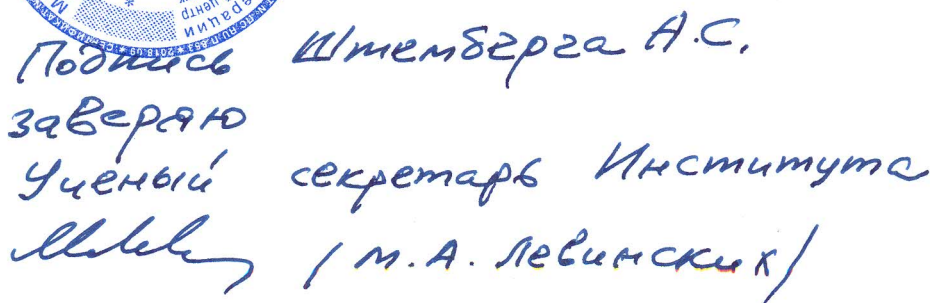 Подпись Штемберга А.С.
заверяю
Ученый секретарь Института
/ М.А. Левинских/